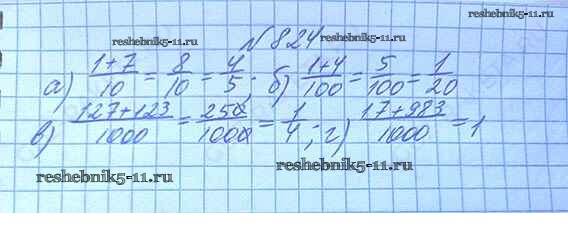 reshebnik5-11.ru
№824
reshebnik5-11.ru
а) (1+7)/10 = 8/10 = 4/5; б) (1+4)/100 = 5/100 = 1/20
в) (127+123)/1000 = 250/1000 = 1/4; г) (17+983)/1000 = 1
reshebnik5-11.ru
reshebnik5-11.ru